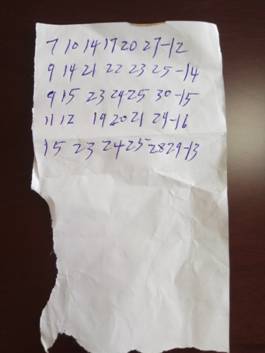 7 10 14 17 20 27-12
9 14 21 22 23 25-14
9 15 23 24 25 30-15
11 12 19 20 21 29-16
15 23 24 25 28 29-13